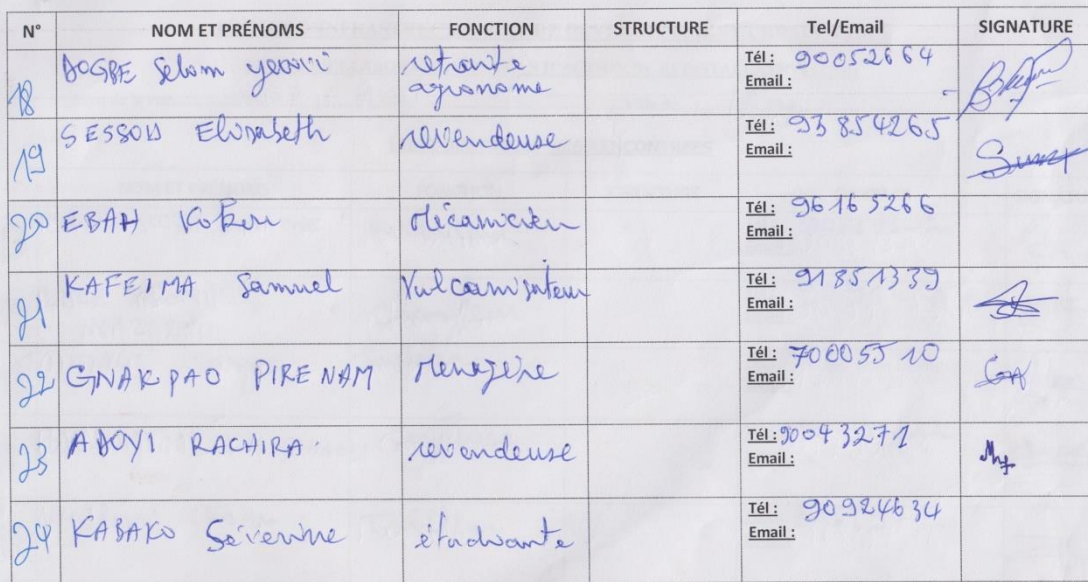 N° NOM ET PRÉNOMS FONCTION STRUCTURE Tel/Email SIGNATURE
18 DOGBE Selom Yaovi retraité agronome Tél : 90052664
Email :
19 SESSOU Elisabeth revendeuse Tél : 93854265
Email :
20 EBAH Kokou Mécanicien Tél : 96165266
Email :
21 KAFEIMA Samuel Vulcanisateur Tél : 91851339
Email :
22 GNAKPAO PIRENAM Menagère Tél : 70005510
Email :
23 ABOYI RACHIRA revendeuse Tél : 90043271
Email :
24 KABAKO Séverine étudiante Tél : 90924634
Email :